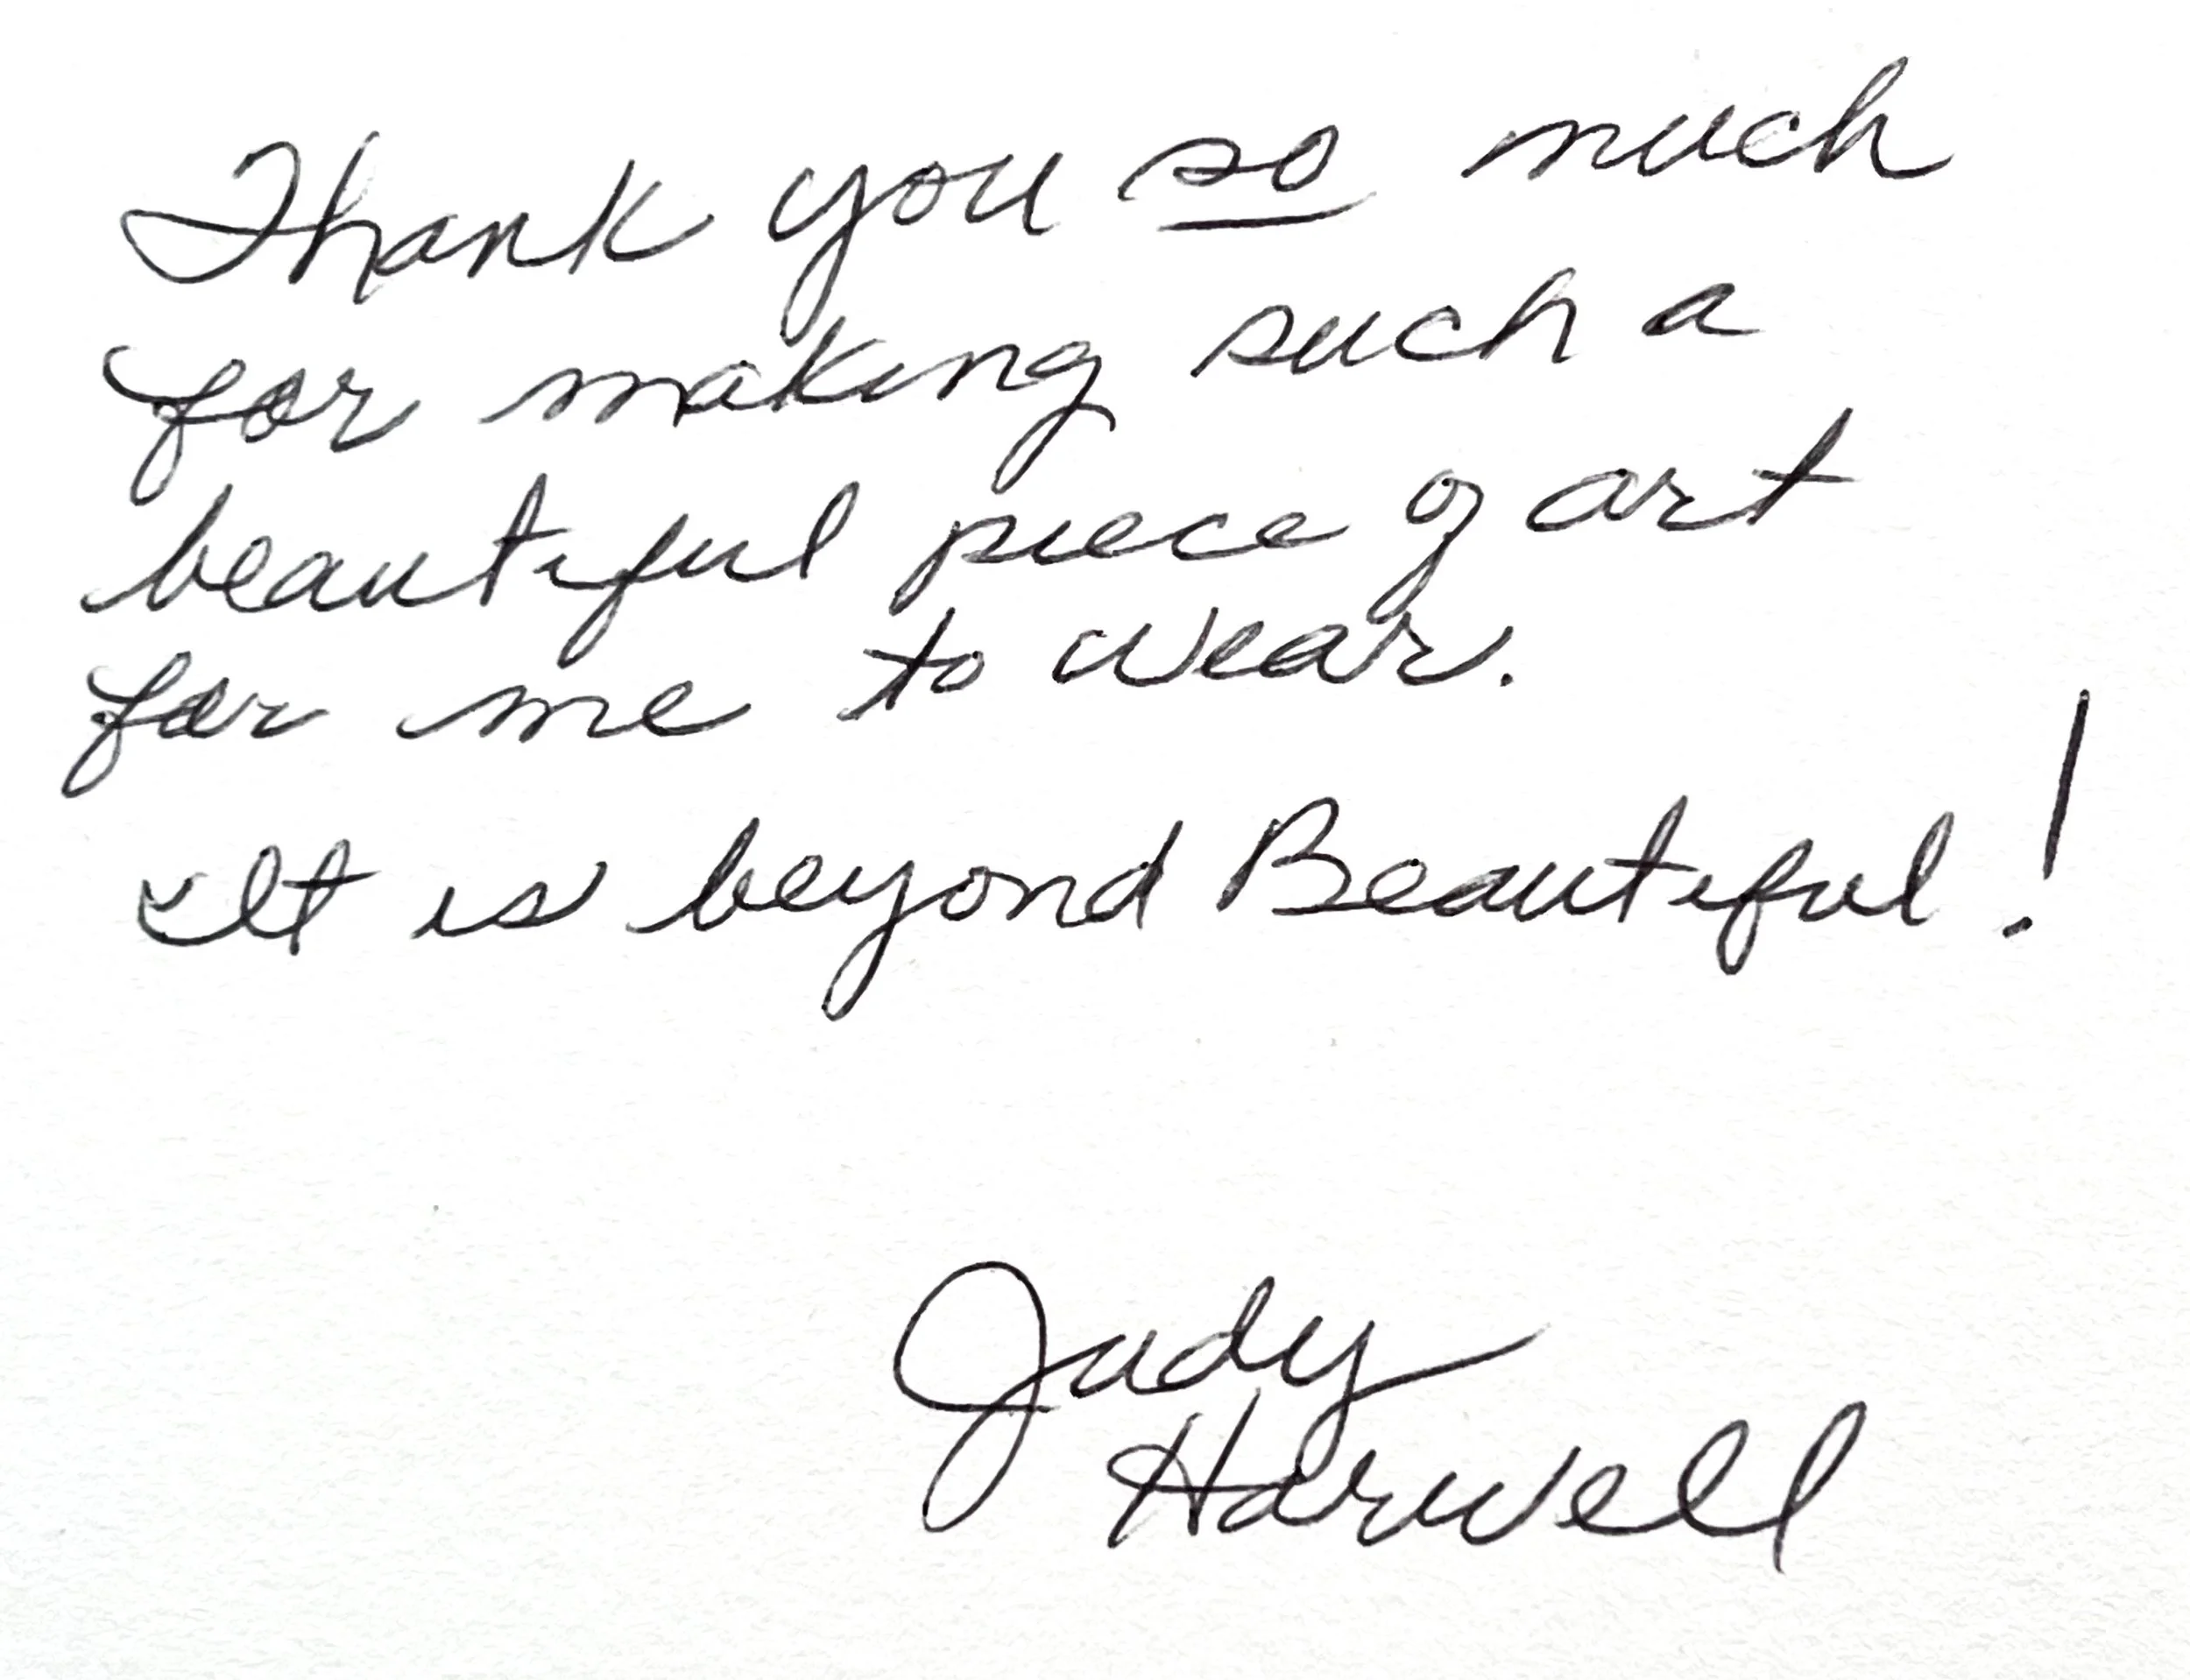 Thank you so much
for making such a
beautiful piece of art
for me to wear.
It is beyond Beautiful!
Judy
Harwell